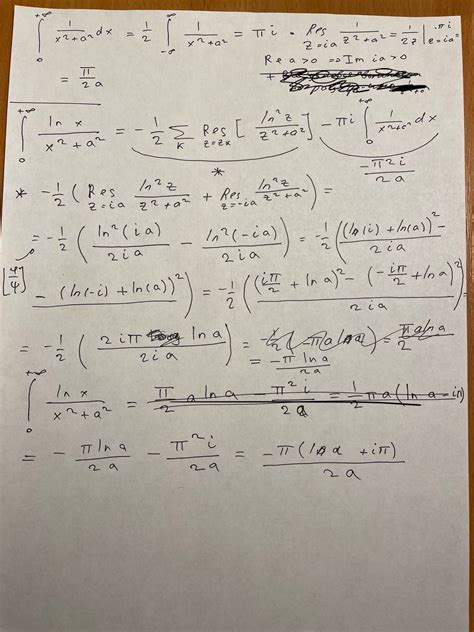 ∫₀^{+∞} 1/(x²+a²) dx = 1/2 ∫_{-∞}^{+∞} 1/(x²+a²) = πi · Res_{z=ia} 1/(z²+a²) = 1/(2z) |_{z=ia} · πi
= π/(2a)
Re a>0 ⇒ Im ia>0
∫₀^{+∞} ln x/(x²+a²) = -1/2 Σ_k Res_{z=z_k} [ln²z/(z²+a²)] - πi ∫₀^{+∞} 1/(x²+a²) dx
*
-π²i/(2a)
* -1/2 (Res_{z=ia} ln²z/(z²+a²) + Res_{z=-ia} ln²z/(z²+a²)) =
= -1/2 (ln²(ia)/(2ia) - ln²(-ia)/(2ia)) = -1/2 (((ln(i)+ln(a))² -
[φ/ψ]
- (ln(-i)+ln(a))²)/(2ia)) = -1/2 (((iπ/2 + ln a)² - (-iπ/2 + ln a)²)/(2ia)) =
= -1/2 (2iπ ln a/(2ia)) = -1/2 (-πa ln a) = πa ln a/2
= -π ln a/(2a)
∫₀^{+∞} ln x/(x²+a²) = π/2 a ln a - π²i/(2a) = 1/2 πa(ln a - iπ)
= - π ln a/(2a) - π²i/(2a) = -π(ln a + iπ)/(2a)